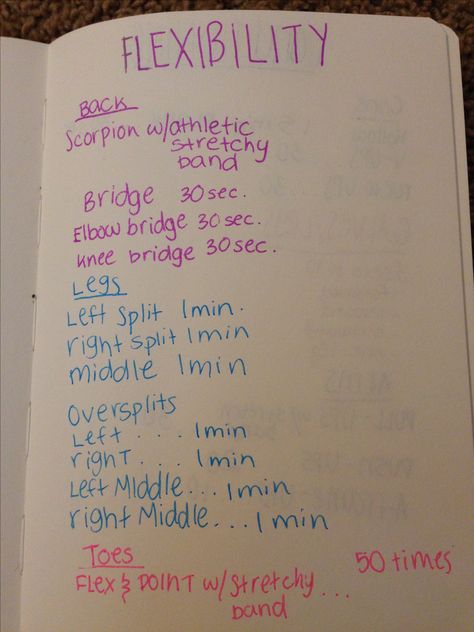 FLEXIBILITY
Back
Scorpion w/athletic
stretchy
band
Bridge 30 sec.
Elbow bridge 30 sec.
Knee bridge 30 sec.
Legs
Left split 1min.
right split 1min
middle 1min
Oversplits
Left . . . 1min
right . . . 1min
Left Middle . . . 1min
right Middle . . . 1min
Toes
50 times
Flex & POINT w/stretchy . . .
band